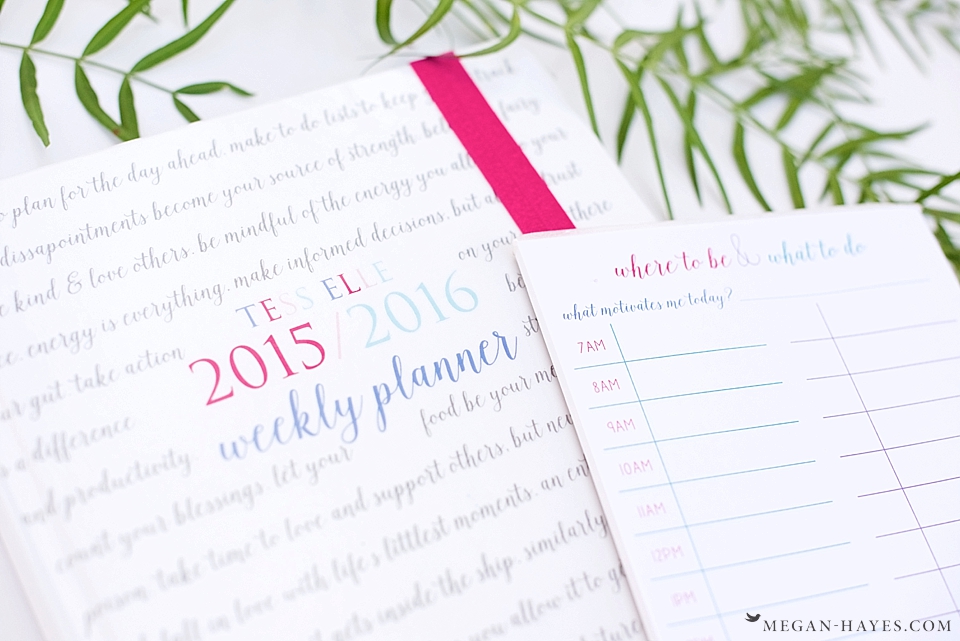 track
plan for the day ahead. make to do lists to keep
fairy
dissapointments become your source of strength. bel
e kind & love others. be mindful of the energy you all
to your
ce. energy is everything. make informed decisions, but a
trust
on your
there
gut. take action
TESS ELLE
2015/2016
weekly planner
a difference
and productivity
food be your me
count your blessings. let your
person. take time to love and support others, but nev
in love with life's littlest moments. an ent
gets inside the ship. similarly
you allow it to g
where to be & what to do
what motivates me today?
7AM
8AM
9AM
10AM
11AM
12PM
1PM
MEGAN-HAYES.COM